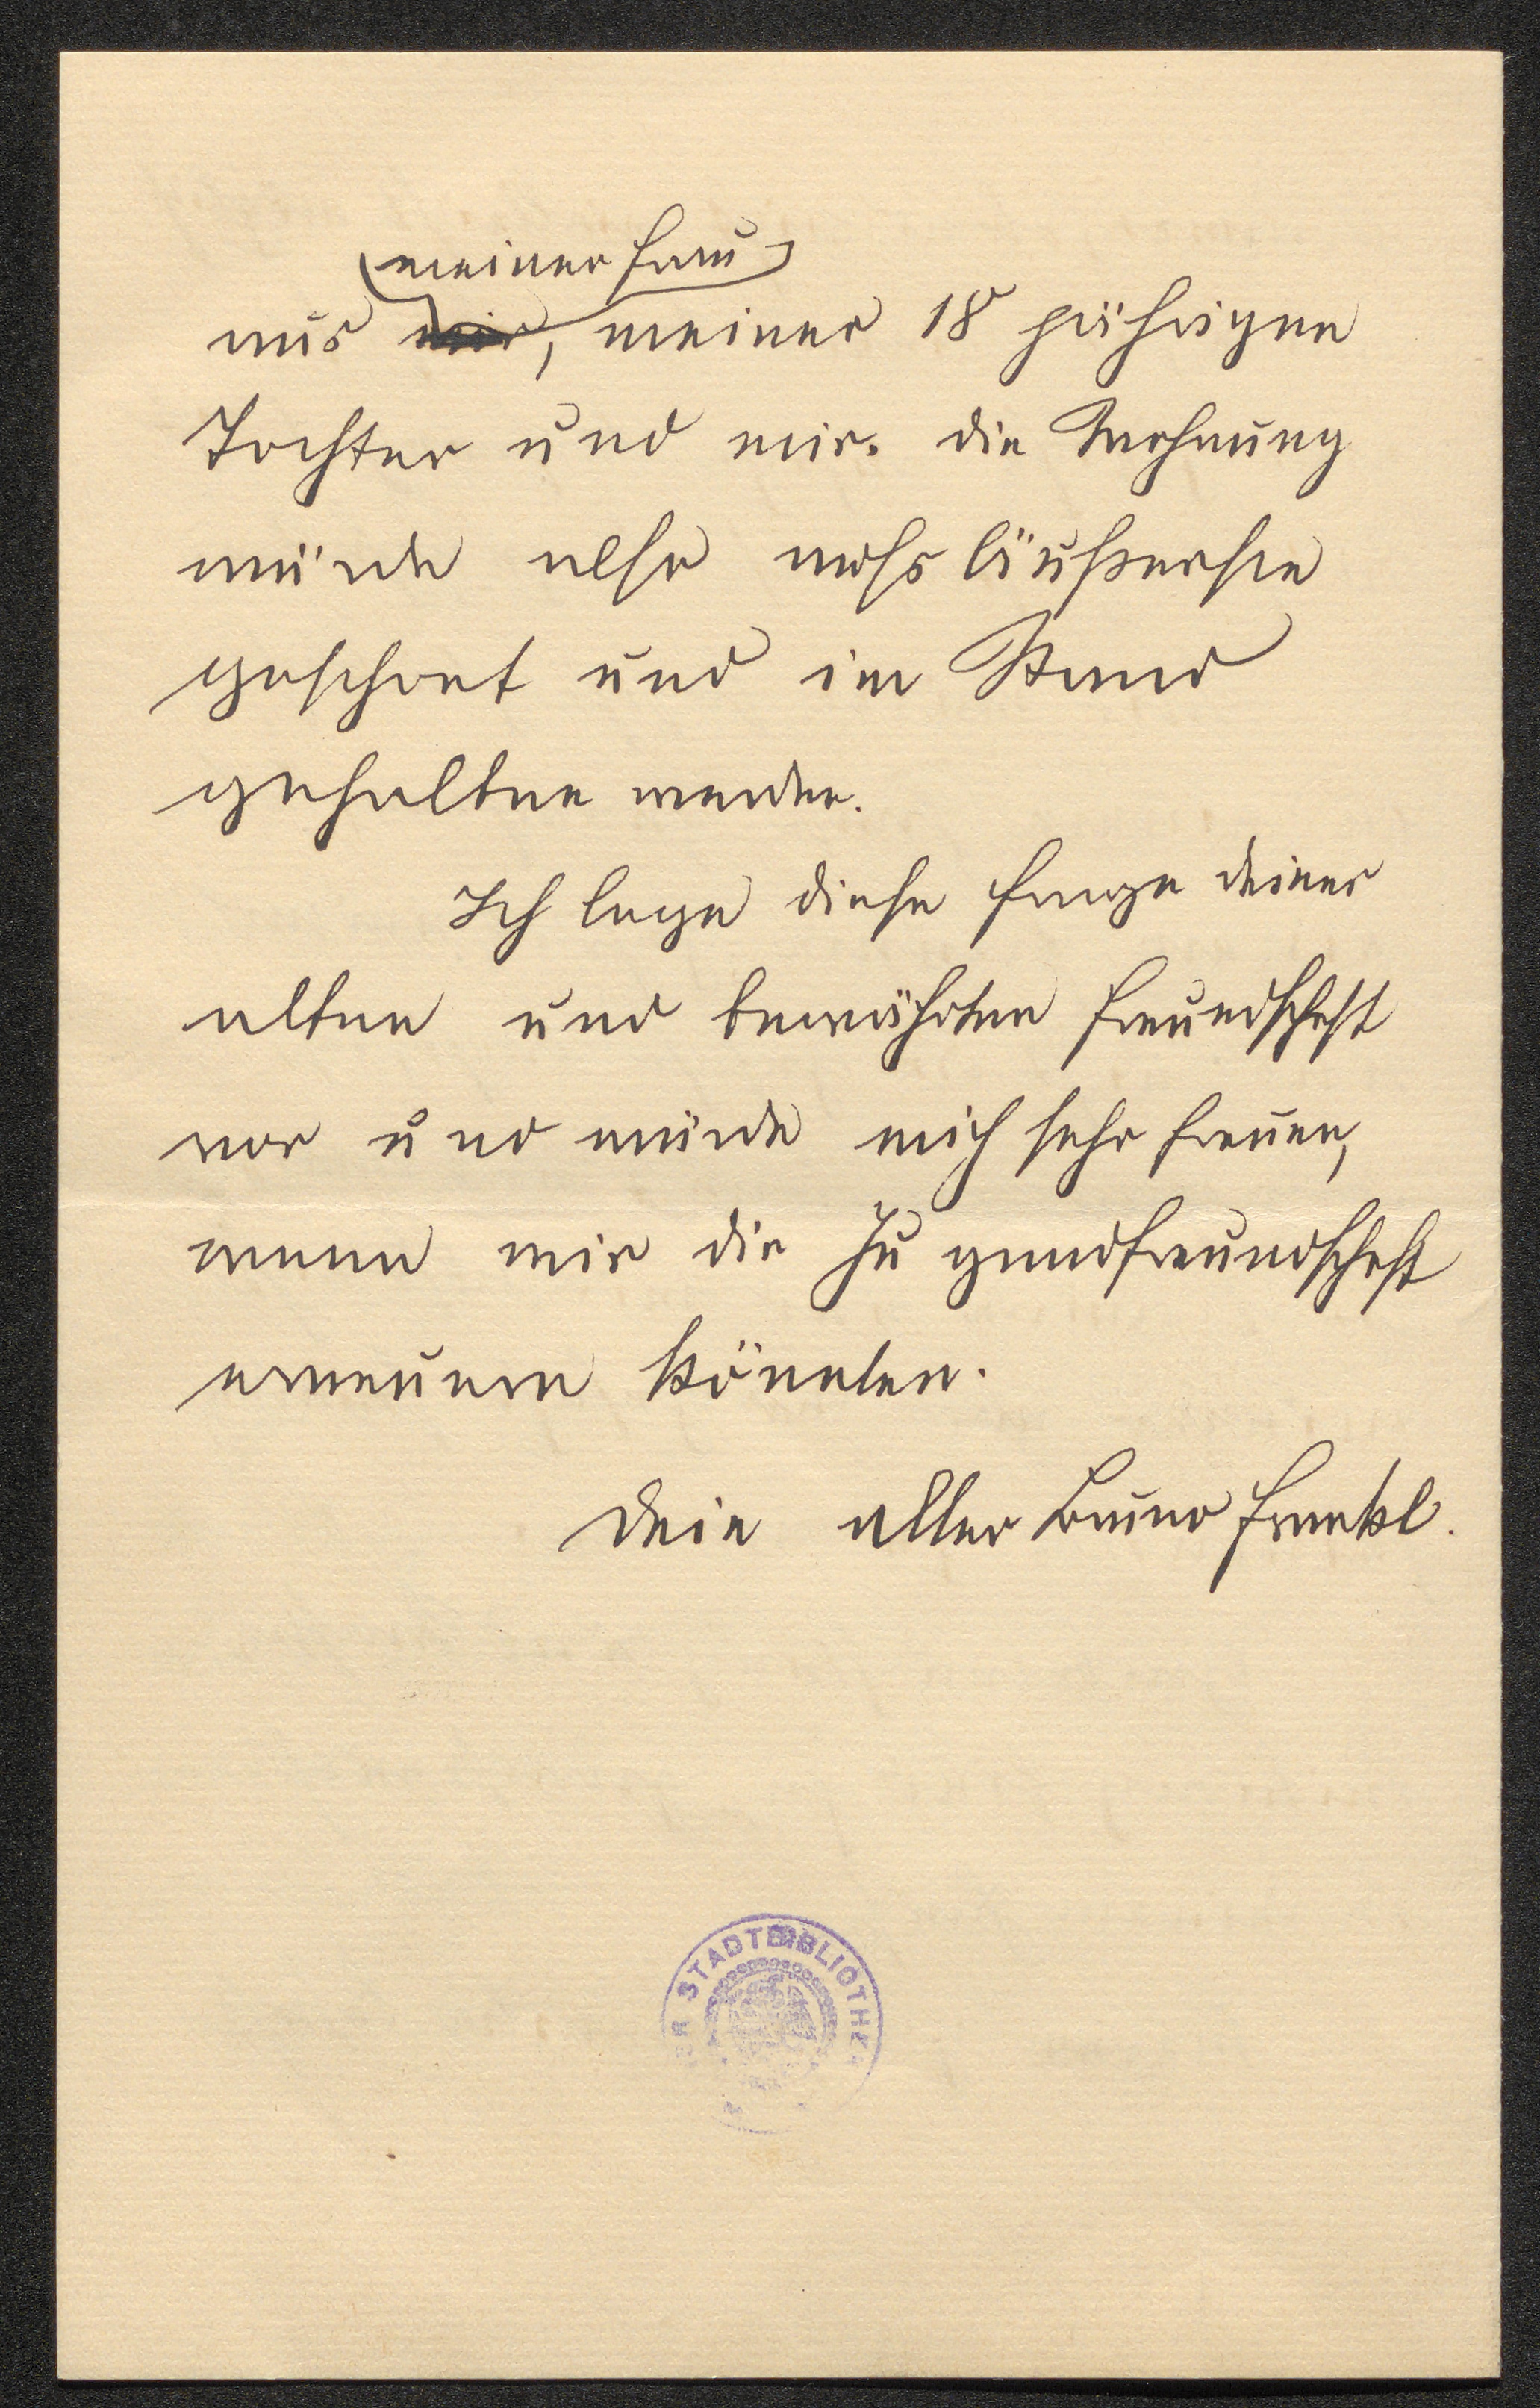 meiner Frau
aus mir, meiner 18 jährigen
Tochter und mir. Die Wohnung
würde also aufs äußerste
geschont und im Stand
gehalten werden.
Ich lege diese Frage deiner
alten und bewährten Freundschaft
vor und würde mich sehr freuen,
wenn wir die Jugendfreundschaft
erneuern könnten.
Dein alter Bruno Frankl.
STADTBIBLIOTHEK